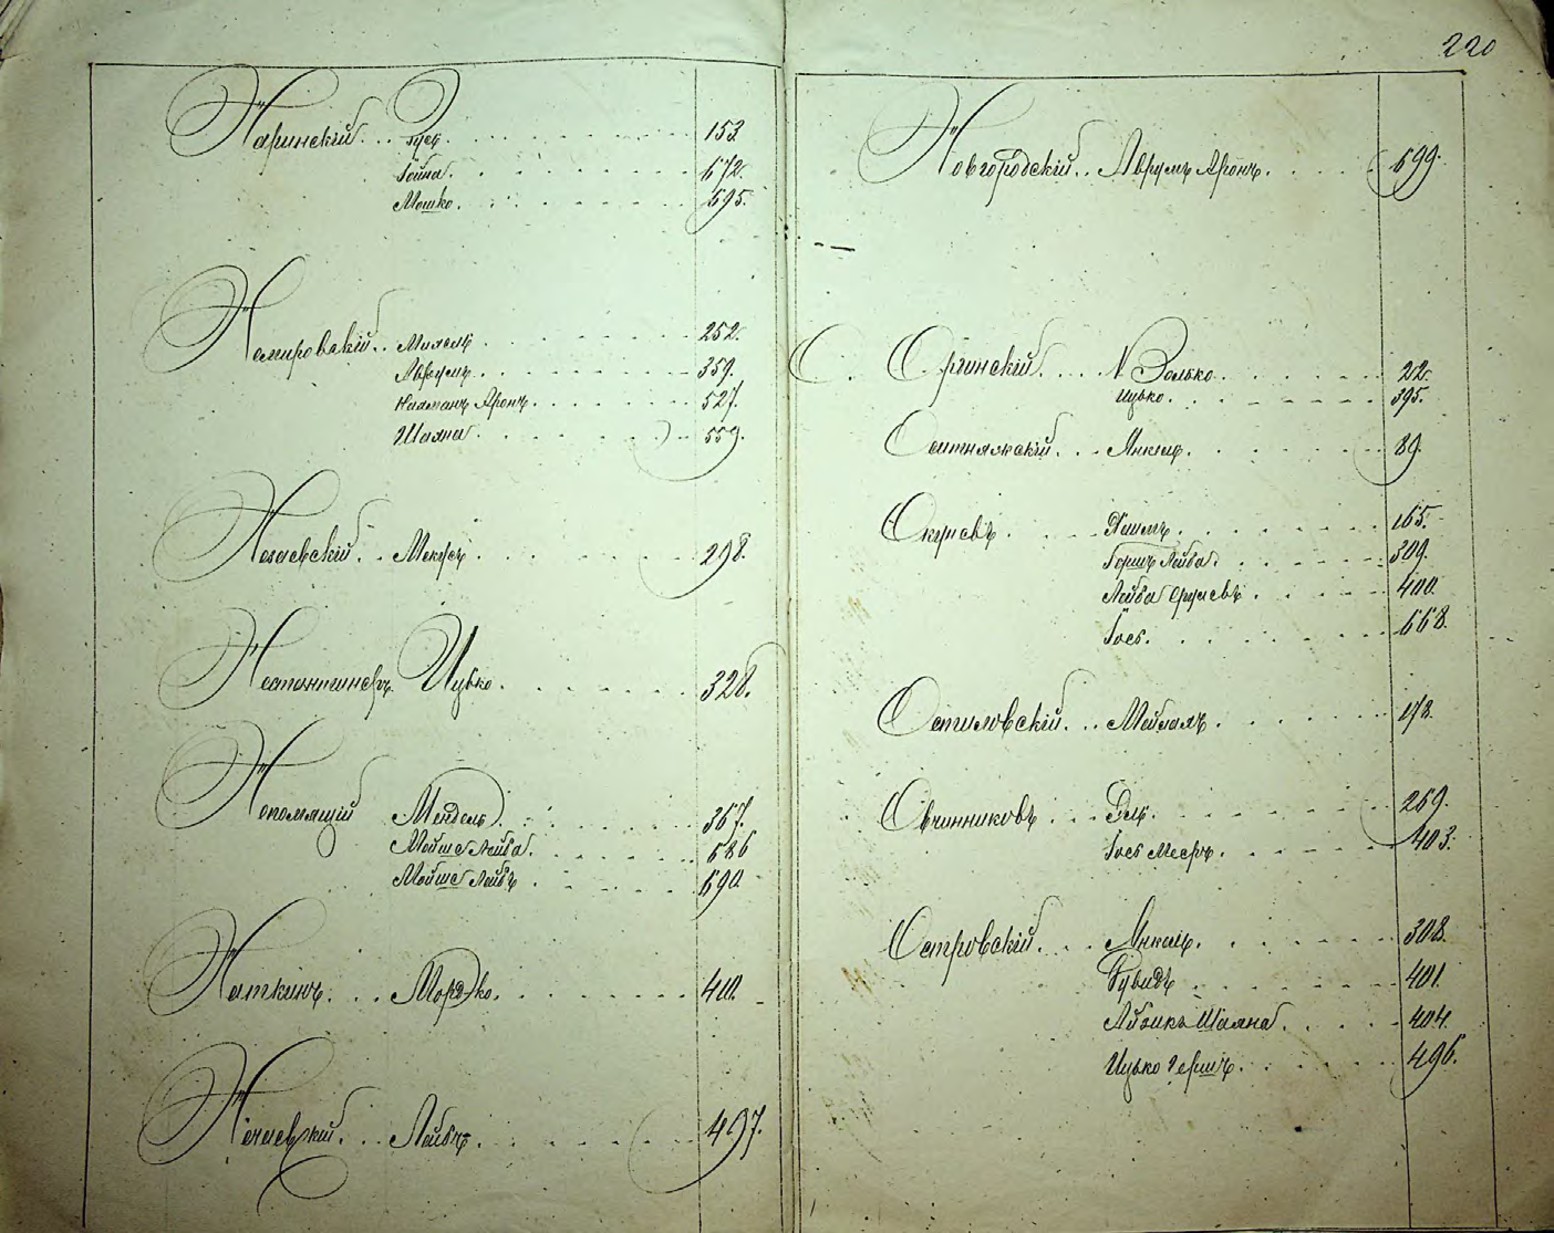 220
Наринскій... Зусь. 153
Гойна. 672.
Мошко. 695.
Немировскій.. Михель 252.
Аврумъ. 359.
Нахманъ Аронъ. 527.
Шаяна 559.
Незаевскій.. Мееръ 298.
Ицько. 328.
Непомящій Мендель 367.
Мойше Лейба. 686
Мойше Лейбъ 690.
Наткинъ... Мордко. 410.
Нечаевскій... Лейбъ. 497.
Новгородскій.. Аврумъ Аронъ. 699.
О. Оргинскій.... Волько. 22.
Ицько. 395.
Оситняжскій... Янкель. 89.
Окуневъ. 165.
Гершъ Лейба. 309.
Лейба Сруль 400.
Іось. 668.
Остиловскій... 178.
Овчинниковъ... Эль. 269.
Іось Мееръ. 403.
Островскій... Янкель. 308.
Рувинъ 401.
Айзикъ Шаяна. 404.
Ицько Гершъ. 496.